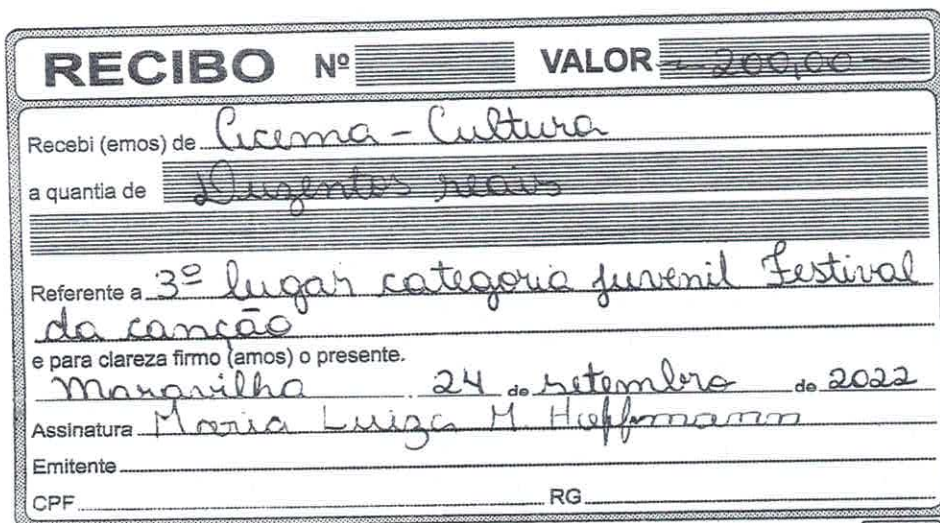 RECIBO Nº VALOR 200,00
Recebi (emos) de Cicema - Cultura
a quantia de Duzentos reais
Referente a 3º lugar categoria juvenil Festival
da canção
e para clareza firmo (amos) o presente.
Maravilha 24 de setembro de 2022
Assinatura Maria Luiza M. Hoffmann
Emitente
CPF RG